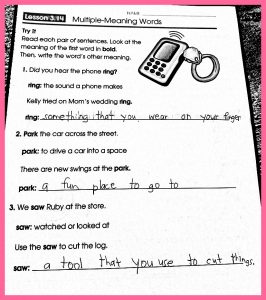 Lesson 3:14 Multiple-Meaning Words
Try it
Read each pair of sentences. Look at the
meaning of the first word in bold.
Then, write the word's other meaning.
1. Did you hear the phone ring?
ring: the sound a phone makes
Kelly tried on Mom's wedding ring.
ring: something that you wear on your finger
2. Park the car across the street.
park: to drive a car into a space
There are new swings at the park.
park: a fun place to go to
3. We saw Ruby at the store.
saw: watched or looked at
Use the saw to cut the log.
saw: a tool that you use to cut things.